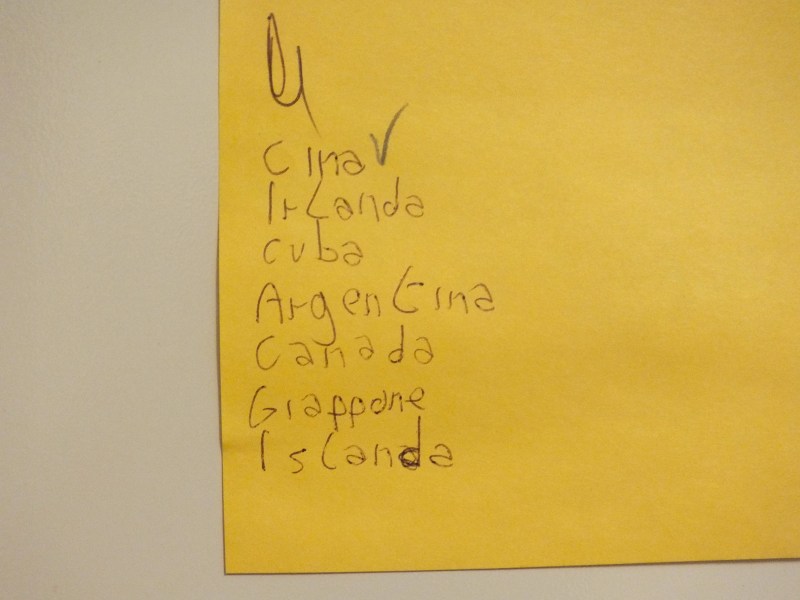 Cina
Irlanda
Cuba
Argentina
Canada
Giappone
Islanda